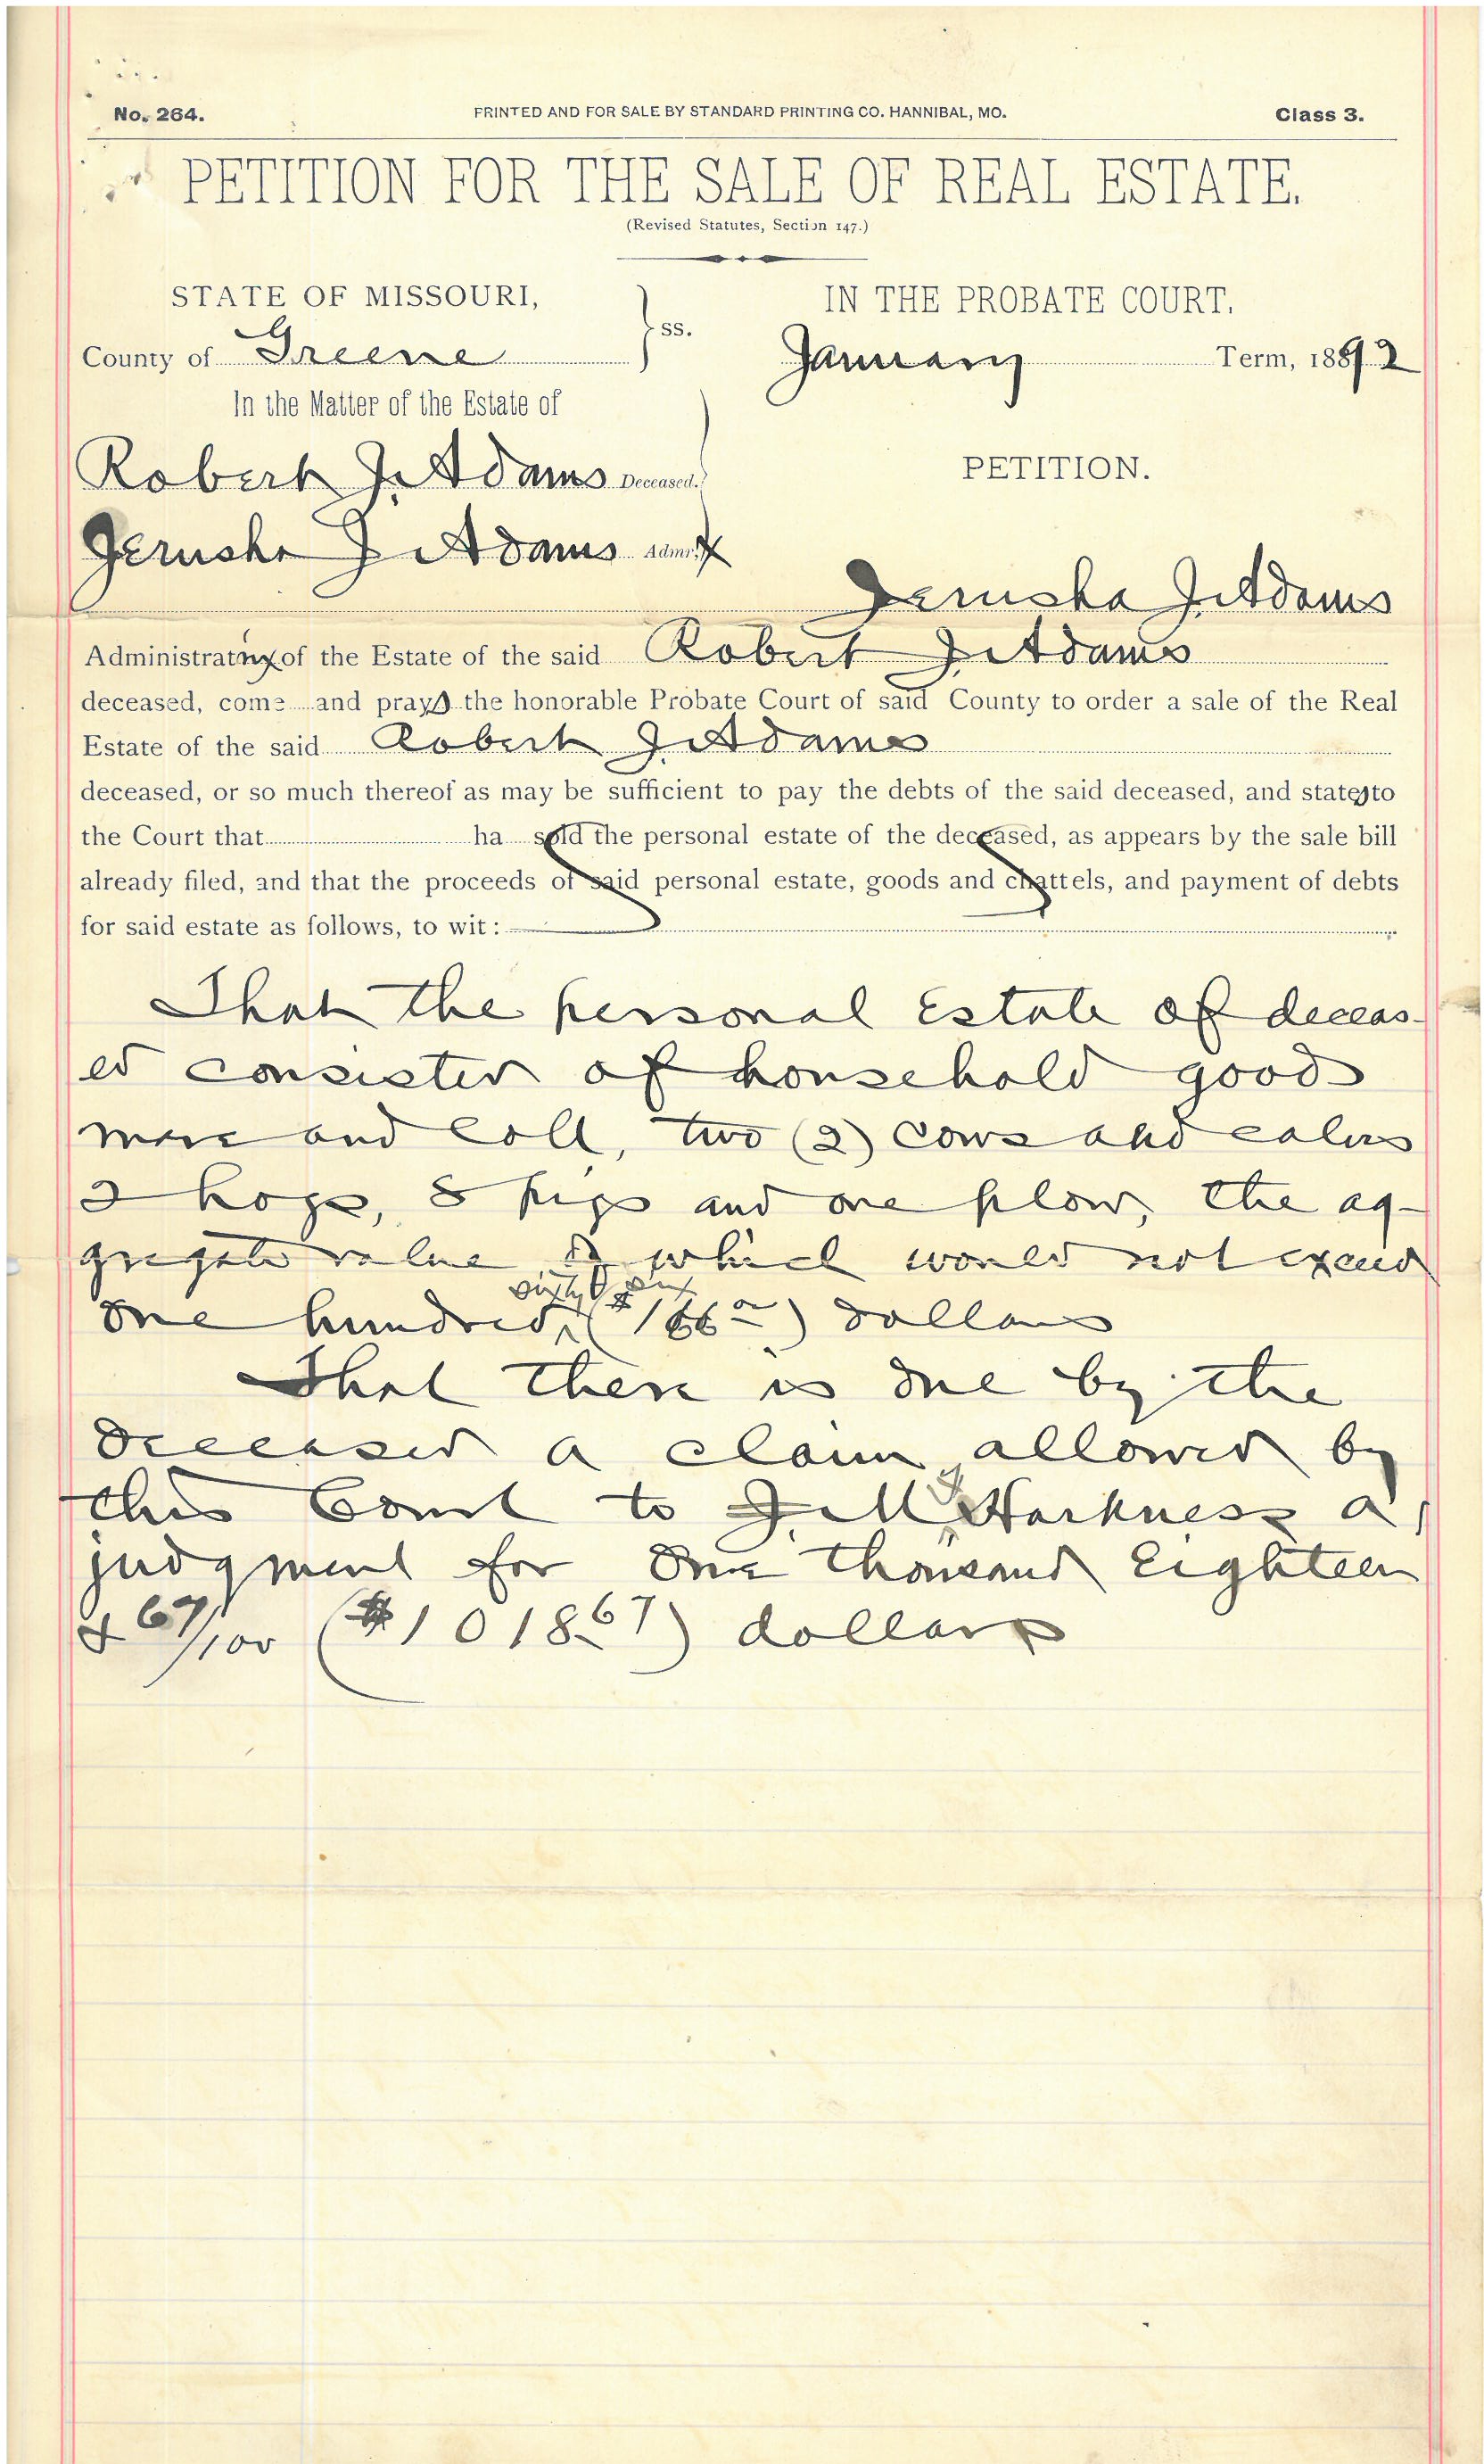 No. 264. PRINTED AND FOR SALE BY STANDARD PRINTING CO. HANNIBAL, MO. Class 3.
PETITION FOR THE SALE OF REAL ESTATE.
(Revised Statutes, Section 147.)
STATE OF MISSOURI, ss. IN THE PROBATE COURT.
County of Greene January Term, 1892
In the Matter of the Estate of
Robert J. Adams Deceased. PETITION.
Jerusha J Adams Admr.x
Jerusha J. Adams
Administratrix of the Estate of the said Robert J. Adams
deceased, come and prays the honorable Probate Court of said County to order a sale of the Real
Estate of the said Robert J. Adams
deceased, or so much thereof as may be sufficient to pay the debts of the said deceased, and states to
the Court that ha sold the personal estate of the deceased, as appears by the sale bill
already filed, and that the proceeds of said personal estate, goods and chattels, and payment of debts
for said estate as follows, to wit:
That the personal Estate of deceas-
ed consisted of household goods
mare and colt, two (2) cows and calves
2 hogs, 8 pigs and one plow, the ag-
gregate value of which would not exceed
sixty six
one hundred ($166 00) dollars
That there is due by the
deceased a claim allowed by
this Court to J. M. Harkness a
judgment for One thousand Eighteen
& 67/100 ($1018.67) dollars